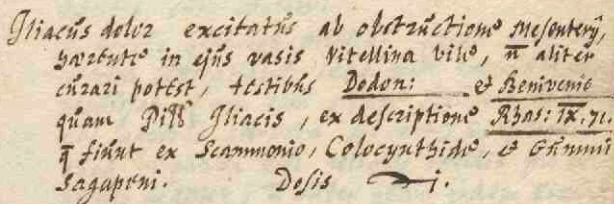 Iliacus dolor excitatus ab obstructione Mesenterij,
haerente in ejus vasis vitellina bile, n̄ aliter
curari potest, testibus Dodon: et Benivenio
quam Pill Iliacis, ex descriptione Rhas: IX. 71.
q̄ fiunt ex Scammonio, Colocynthide, et Gummi
Sagapeni. Dosis i.